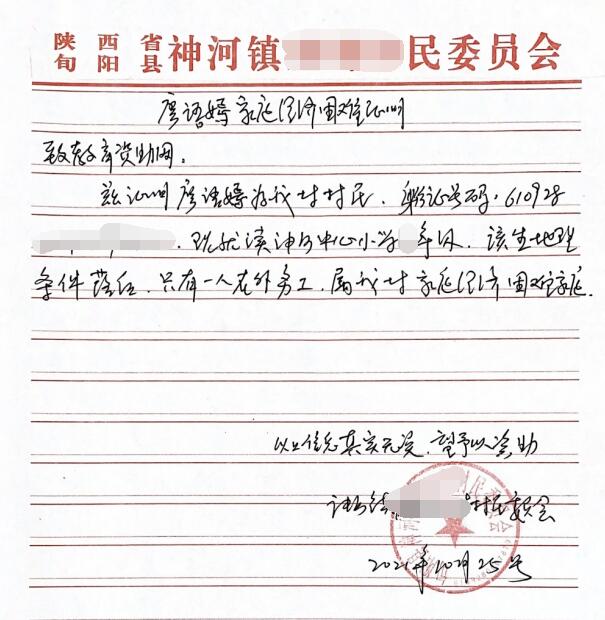 陕西省
旬阳县 神河镇 民委员会
廖语嫣家庭经济困难证明
致教育资助网：
兹证明廖语嫣为我村村民，身份证号码：610928
，现就读神河中心小学 年级，该生地理
条件落后，只有一人在外务工，属我村家庭经济困难家庭.
以上信息真实无误，望予以资助
村民委员会
2021年10月25号